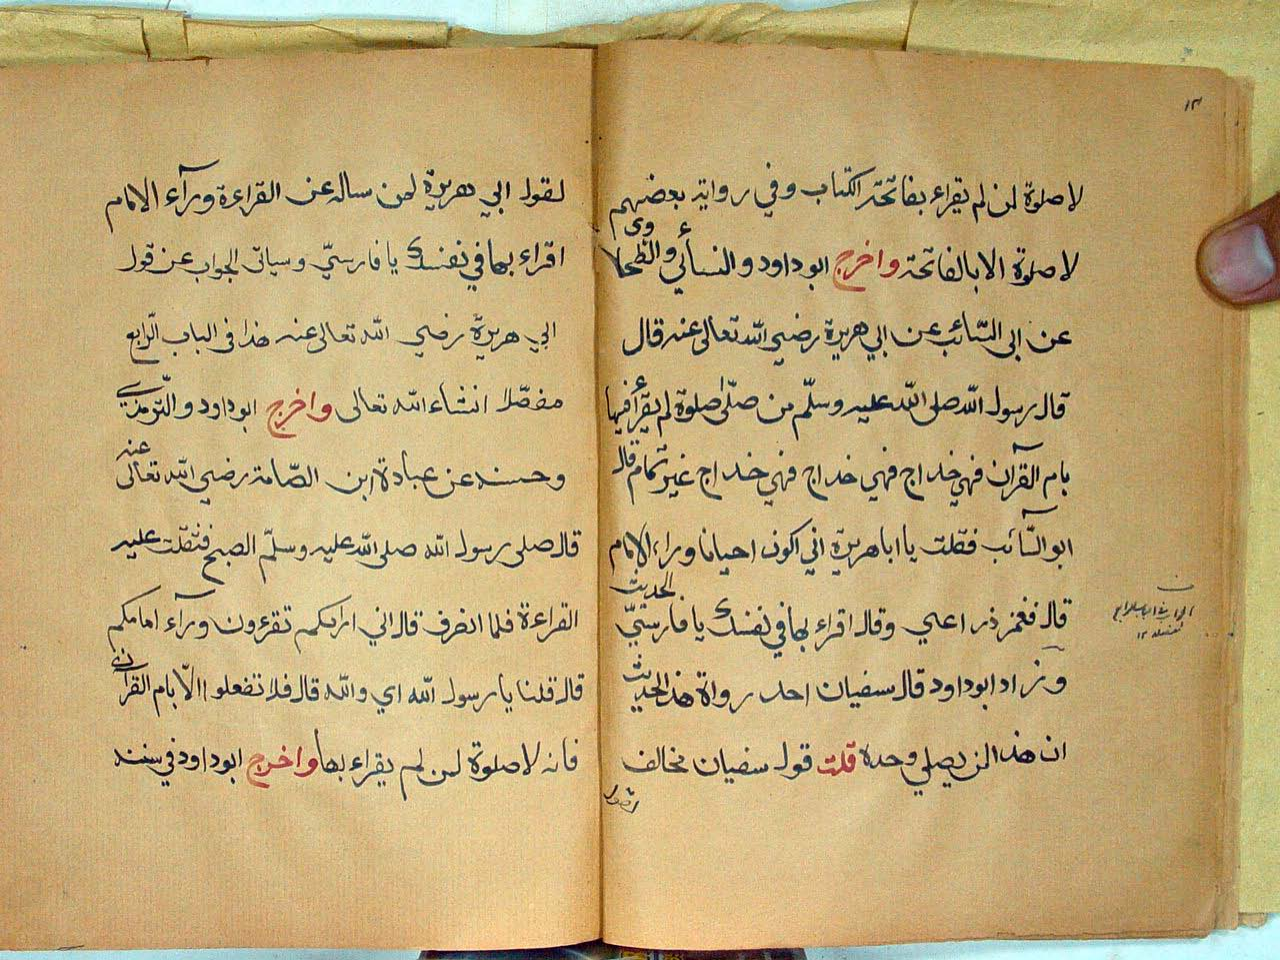 ١٣
لا صلوة لمن لم يقراء بفاتحة الكتاب وفي رواية بعضهم
لا صلوة الا بالفاتحة واخرج ابو داود والنسائي والطحاوى
عن ابى السّائب عن ابي هريرة رضي اللّه تعالى عنه قال
قال رسول اللّه صلى اللّه عليه وسلّم من صلّى صلوة لم يقرأ فيها
بام القرآن فهي خداج فهي خداج فهي خداج غير تمام قال
ابو السّائب فقلت يا ابا هريرة اني اكون احيانا وراء الامام
قال فغمز ذراعي وقال اقراء بها في نفسك يا فارسيّ الحديث
وزاد ابو داود قال سفيان احد رواة هذا الحديث
ان هذا لمن يصلي وحده قلت قول سفيان مخالف
لقول
لقول ابي هريرة لمن ساله عن القراءة ورآء الامام
اقراء بها في نفسك يا فارسيّ وسياتى الجواب عن قول
ابي هريرة رضي اللّه تعالى عنه هذا فى الباب الرّابع
مفصّلا انشاء اللّه تعالى واخرج ابو داود والتّرمذي
وحسنه عن عبادة ابن الصّامة رضي اللّه تعالى عنه
قال صلى رسول اللّه صلى اللّه عليه وسلّم الصبح فثقلت عليه
القراءة فلما انصرف قال اني اراكم تقرءون ورآء امامكم
قال قلنا يا رسول اللّه اي واللّه قال فلا تفعلوا الّا بام القرآن
فانه لا صلوة لمن لم يقراء بها واخرج ابو داود في سننه